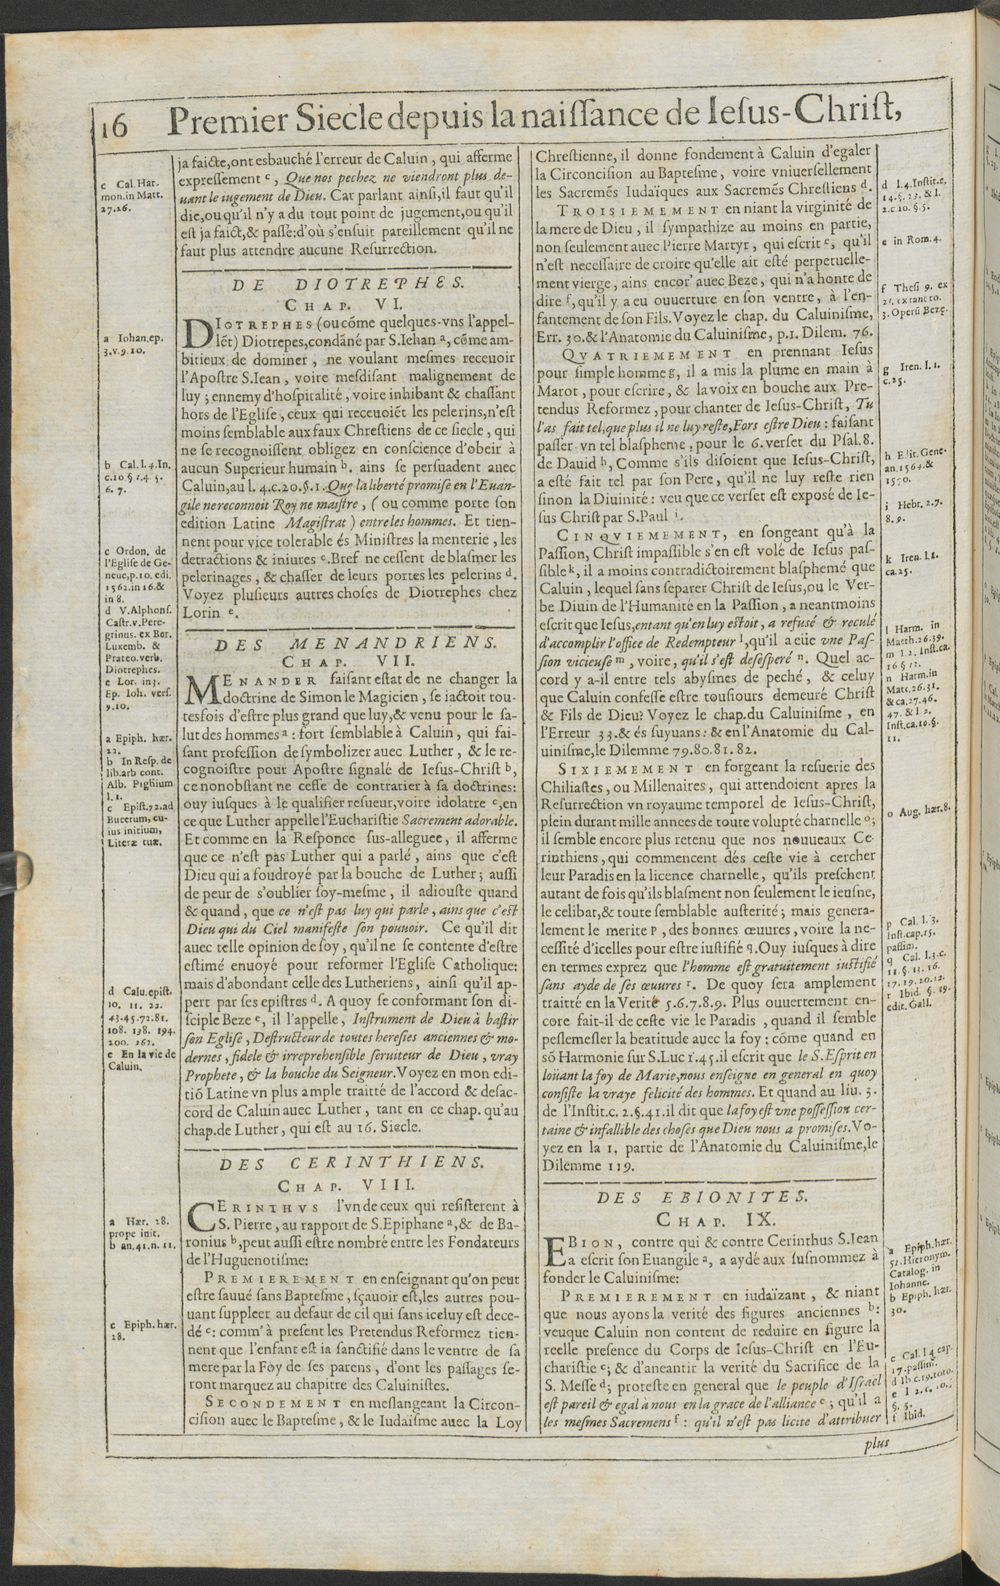 16 Premier Siecle depuis la naissance de Iesus-Christ,
ja faicte, ont esbauché l'erreur de Caluin, qui afferme
expressement c, Que nos pechez ne viendront plus de-
uant le iugement de Dieu. Car parlant ainsi, il faut qu'il
die, ou qu'il n'y a du tout point de jugement, ou qu'il
est ja faict, & passé: d'où s'ensuit pareillement qu'il ne
faut plus attendre aucune Resurrection.
DE DIOTREPHES.
CHAP. VI.
DIOTREPHES (ou cõme quelques-vns l'appel-
lẽt) Diotrepes, condãné par S. Iehan a, cõme am-
bitieux de dominer, ne voulant mesmes receuoir
l'Apostre S. Iean, voire mesdisant malignement de
luy; ennemy d'hospitalité, voire inhibant & chassant
hors de l'Eglise, ceux qui receuoiẽt les pelerins, n'est
moins semblable aux faux Chrestiens de ce siecle, qui
ne se recognoissent obligez en conscience d'obeir à
aucun Superieur humain b. ains se persuadent auec
Caluin, au l. 4. c. 20. §. 1. Que la liberté promise en l'Euan-
gile ne reconnoit Roy ne maistre, (ou comme porte son
edition Latine Magistrat) entre les hommes. Et tien-
nent pour vice tolerable és Ministres la menterie, les
detractions & iniures c. Bref ne cessent de blasmer les
pelerinages, & chasser de leurs portes les pelerins d.
Voyez plusieurs autres choses de Diotrephes chez
Lorin e.
DES MENANDRIENS.
CHAP. VII.
MENANDER faisant estat de ne changer la
doctrine de Simon le Magicien, se iactoit tou-
tesfois d'estre plus grand que luy, & venu pour le sa-
lut des hommes a: fort semblable à Caluin, qui fai-
sant profession de symbolizer auec Luther, & le re-
cognoistre pour Apostre signalé de Iesus-Christ b,
ce nonobstant ne cesse de contrarier à sa doctrines:
ouy iusques à le qualifier resueur, voire idolatre c, en
ce que Luther appelle l'Eucharistie Sacrement adorable.
Et comme en la Responce sus-alleguee, il afferme
que ce n'est pas Luther qui a parlé, ains que c'est
Dieu qui a foudroyé par la bouche de Luther; aussi
de peur de s'oublier soy-mesme, il adiouste quand
& quand, que ce n'est pas luy qui parle, ains que c'est
Dieu qui du Ciel manifeste son pouuoir. Ce qu'il dit
auec telle opinion de soy, qu'il ne se contente d'estre
estimé enuoyé pour reformer l'Eglise Catholique:
mais d'abondant celle des Lutheriens, ainsi qu'il ap-
pert par ses epistres d. A quoy se conformant son di-
sciple Beze e, il l'appelle, Instrument de Dieu à bastir
son Eglise, Destructeur de toutes heresies anciennes & mo-
dernes, fidele & irreprehensible seruiteur de Dieu, vray
Prophete, & la bouche du Seigneur. Voyez en mon edi-
tiõ Latine vn plus ample traitté de l'accord & desac-
cord de Caluin auec Luther, tant en ce chap. qu'au
chap. de Luther, qui est au 16. Siecle.
DES CERINTHIENS.
CHAP. VIII.
CERINTHVS l'vn de ceux qui resisterent à
S. Pierre, au rapport de S. Epiphane a, & de Ba-
ronius b, peut aussi estre nombré entre les Fondateurs
de l'Huguenotisme:
PREMIEREMENT en enseignant qu'on peut
estre sauué sans Baptesme, sçauoir est, les autres pou-
uant suppleer au defaut de cil qui sans iceluy est dece-
dé c: comm' à present les Pretendus Reformez tien-
nent que l'enfant est ia sanctifié dans le ventre de sa
mere par la Foy de ses parens, d'ont les passages se-
ront marquez au chapitre des Caluinistes.
SECONDEMENT en meslangeant la Circon-
cision auec le Baptesme, & le Iudaïsme auec la Loy
c Cal. Har.
mon. in Matt.
27.26.
a Iohan. ep.
3. v. 9. 10.
b Cal. l. 4. In.
c. 10 § 1. 4. 5.
6. 7.
c Ordon. de
l'Eglise de Ge-
neue, p. 10. edi.
1562. in 16. &
in 8.
d V. Alphons.
Castr. v. Pere-
grinus. ex Bor.
Luxemb. &
Prateo. verb.
Diotrephes.
e Lor. in 3.
Ep. Ioh. vers.
9. 10.
a Epiph. hær.
22.
b In Resp. de
lib. arb cont.
Alb. Pighium
l. 1.
c Epist. 72. ad
Bucerum, cu-
ius initium,
Literæ tuæ.
d Calu. epist.
10. 11. 22.
43. 45. 72. 81.
108. 138. 194.
200. 262.
e En la vie de
Caluin.
a Hær. 28.
prope init.
b an. 41. n. 11.
c Epiph. hær.
28.
Chrestienne, il donne fondement à Caluin d'egaler
la Circoncision au Baptesme, voire vniuersellement
les Sacremẽs Iudaïques aux Sacremẽs Chrestiens d.
TROISIEMEMENT en niant la virginité de
la mere de Dieu, il sympathize au moins en partie,
non seulement auec Pierre Martyr, qui escrit e, qu'il
n'est necessaire de croire qu'elle ait esté perpetuelle-
ment vierge, ains encor' auec Beze, qui n'a honte de
dire f, qu'il y a eu ouuerture en son ventre, à l'en-
fantement de son Fils. Voyez le chap. du Caluinisme,
Err. 30. & l'Anatomie du Caluinisme, p. 1. Dilem. 76.
QVATRIEMEMENT en prennant Iesus
pour simple homme g, il a mis la plume en main à
Marot, pour escrire, & la voix en bouche aux Pre-
tendus Reformez, pour chanter de Iesus-Christ, Tu
l'as fait tel, que plus il ne luy reste, Fors estre Dieu: faisant
passer vn tel blaspheme, pour le 6. verset du Psal. 8.
de Dauid h, Comme s'ils disoient que Iesus-Christ,
a esté fait tel par son Pere, qu'il ne luy reste rien
sinon la Diuinité: veu que ce verset est exposé de Ie-
sus Christ par S. Paul i.
CINQVIEMEMENT, en songeant qu'à la
Passion, Christ impassible s'en est volé de Iesus pas-
sible k, il a moins contradictoirement blasphemé que
Caluin, lequel sans separer Christ de Iesus, ou le Ver-
be Diuin de l'Humanité en la Passion, a neantmoins
escrit que Iesus, entant qu'en luy estoit, a refusé & reculé
d'accomplir l'office de Redempteur l, qu'il a eüe vne Pas-
sion vicieuse m, voire, qu'il s'est desesperé n. Quel ac-
cord y a-il entre tels abysmes de peché, & celuy
que Caluin confesse estre tousiours demeuré Christ
& Fils de Dieu? Voyez le chap. du Caluinisme, en
l'Erreur 33. & és suyuans: & en l'Anatomie du Cal-
uinisme, le Dilemme 79. 80. 81. 82.
SIXIEMEMENT en forgeant la resuerie des
Chiliastes, ou Millenaires, qui attendoient apres la
Resurrection vn royaume temporel de Iesus-Christ,
plein durant mille annees de toute volupté charnelle o;
il semble encore plus retenu que nos nouueaux Ce-
rinthiens, qui commencent dés ceste vie à cercher
leur Paradis en la licence charnelle, qu'ils preschent
autant de fois qu'ils blasment non seulement le ieusne,
le celibat, & toute semblable austerité; mais genera-
lement le merite p, des bonnes œuures, voire la ne-
cessité d'icelles pour estre iustifié q. Ouy iusques à dire
en termes exprez que l'homme est gratuitement iustifié
sans ayde de ses œuures r. De quoy sera amplement
traitté en la Verité 5. 6. 7. 8. 9. Plus ouuertement en-
core fait-il de ceste vie le Paradis, quand il semble
peslemesler la beatitude auec la foy: cõme quand en
sõ Harmonie sur S. Luc 1. 45. il escrit que le S. Esprit en
loüant la foy de Marie, nous enseigne en general en quoy
consiste la vraye felicité des hommes. Et quand au liu. 3.
de l'Instit. c. 2. §. 41. il dit que la foy est vne possession cer-
taine & infallible des choses que Dieu nous a promises. Vo-
yez en la 1. partie de l'Anatomie du Caluinisme, le
Dilemme 119.
DES EBIONITES.
CHAP. IX.
EBION, contre qui & contre Cerinthus S. Iean
a escrit son Euangile a, a aydé aux susnommez à
fonder le Caluinisme:
PREMIEREMENT en iudaïzant, & niant
que nous ayons la verité des figures anciennes b:
veu que Caluin non content de reduire en figure la
reelle presence du Corps de Iesus-Christ en l'Eu-
charistie c; & d'aneantir la verité du Sacrifice de la
S. Messe d; proteste en general que le peuple d'Israël
est pareil & egal à nous en la grace de l'alliance e; qu'il a
les mesmes Sacremens f: qu'il n'est pas licite d'attribuer
plus
d l. 4. Instit. c.
14. §. 23. & l.
2. c. 10. §. 5.
e in Rom. 4.
f Thesi 9. ex
21. extant to.
3. Operũ Beze.
g Iren. l. 1.
c. 25.
h Edit. Gene-
an. 1564. &
1570.
i Hebr. 2. 7.
8. 9.
k Iren. l. 1.
ca. 25.
l Harm. in
Matth. 26. 39.
m l. 2. Inst. ca.
16 § 12.
n Harm. in
Matt. 26. 31.
& ca. 27. 46.
47. & l 2.
Inst. ca. 10. §.
11.
o Aug. hær. 8.
p Cal. l. 3.
Inst. cap. 15.
passim.
q Cal. l. 3. c.
11. §. 11. 16.
17. 19. 20. 12.
r Ibid. §. 19.
edit. Gall.
a Epiph. hær.
51. Hieronym.
Catalog. in
Iohanne.
b Epiph. hær.
30.
c Cal. l 4 cap.
17. passim.
d Ib c. 19. toto.
e l 2. c. 10.
§. 5.
f Ibid.